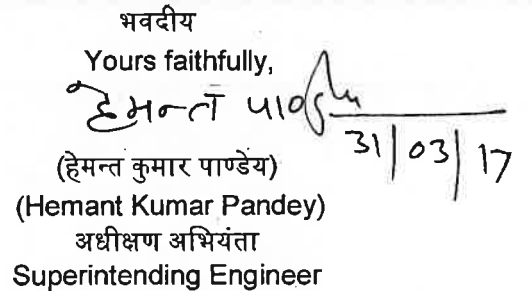 भवदीय
Yours faithfully,
हेमन्त पाण्डेय
31/03/17
(हेमन्त कुमार पाण्डेय)
(Hemant Kumar Pandey)
अधीक्षण अभियंता
Superintending Engineer